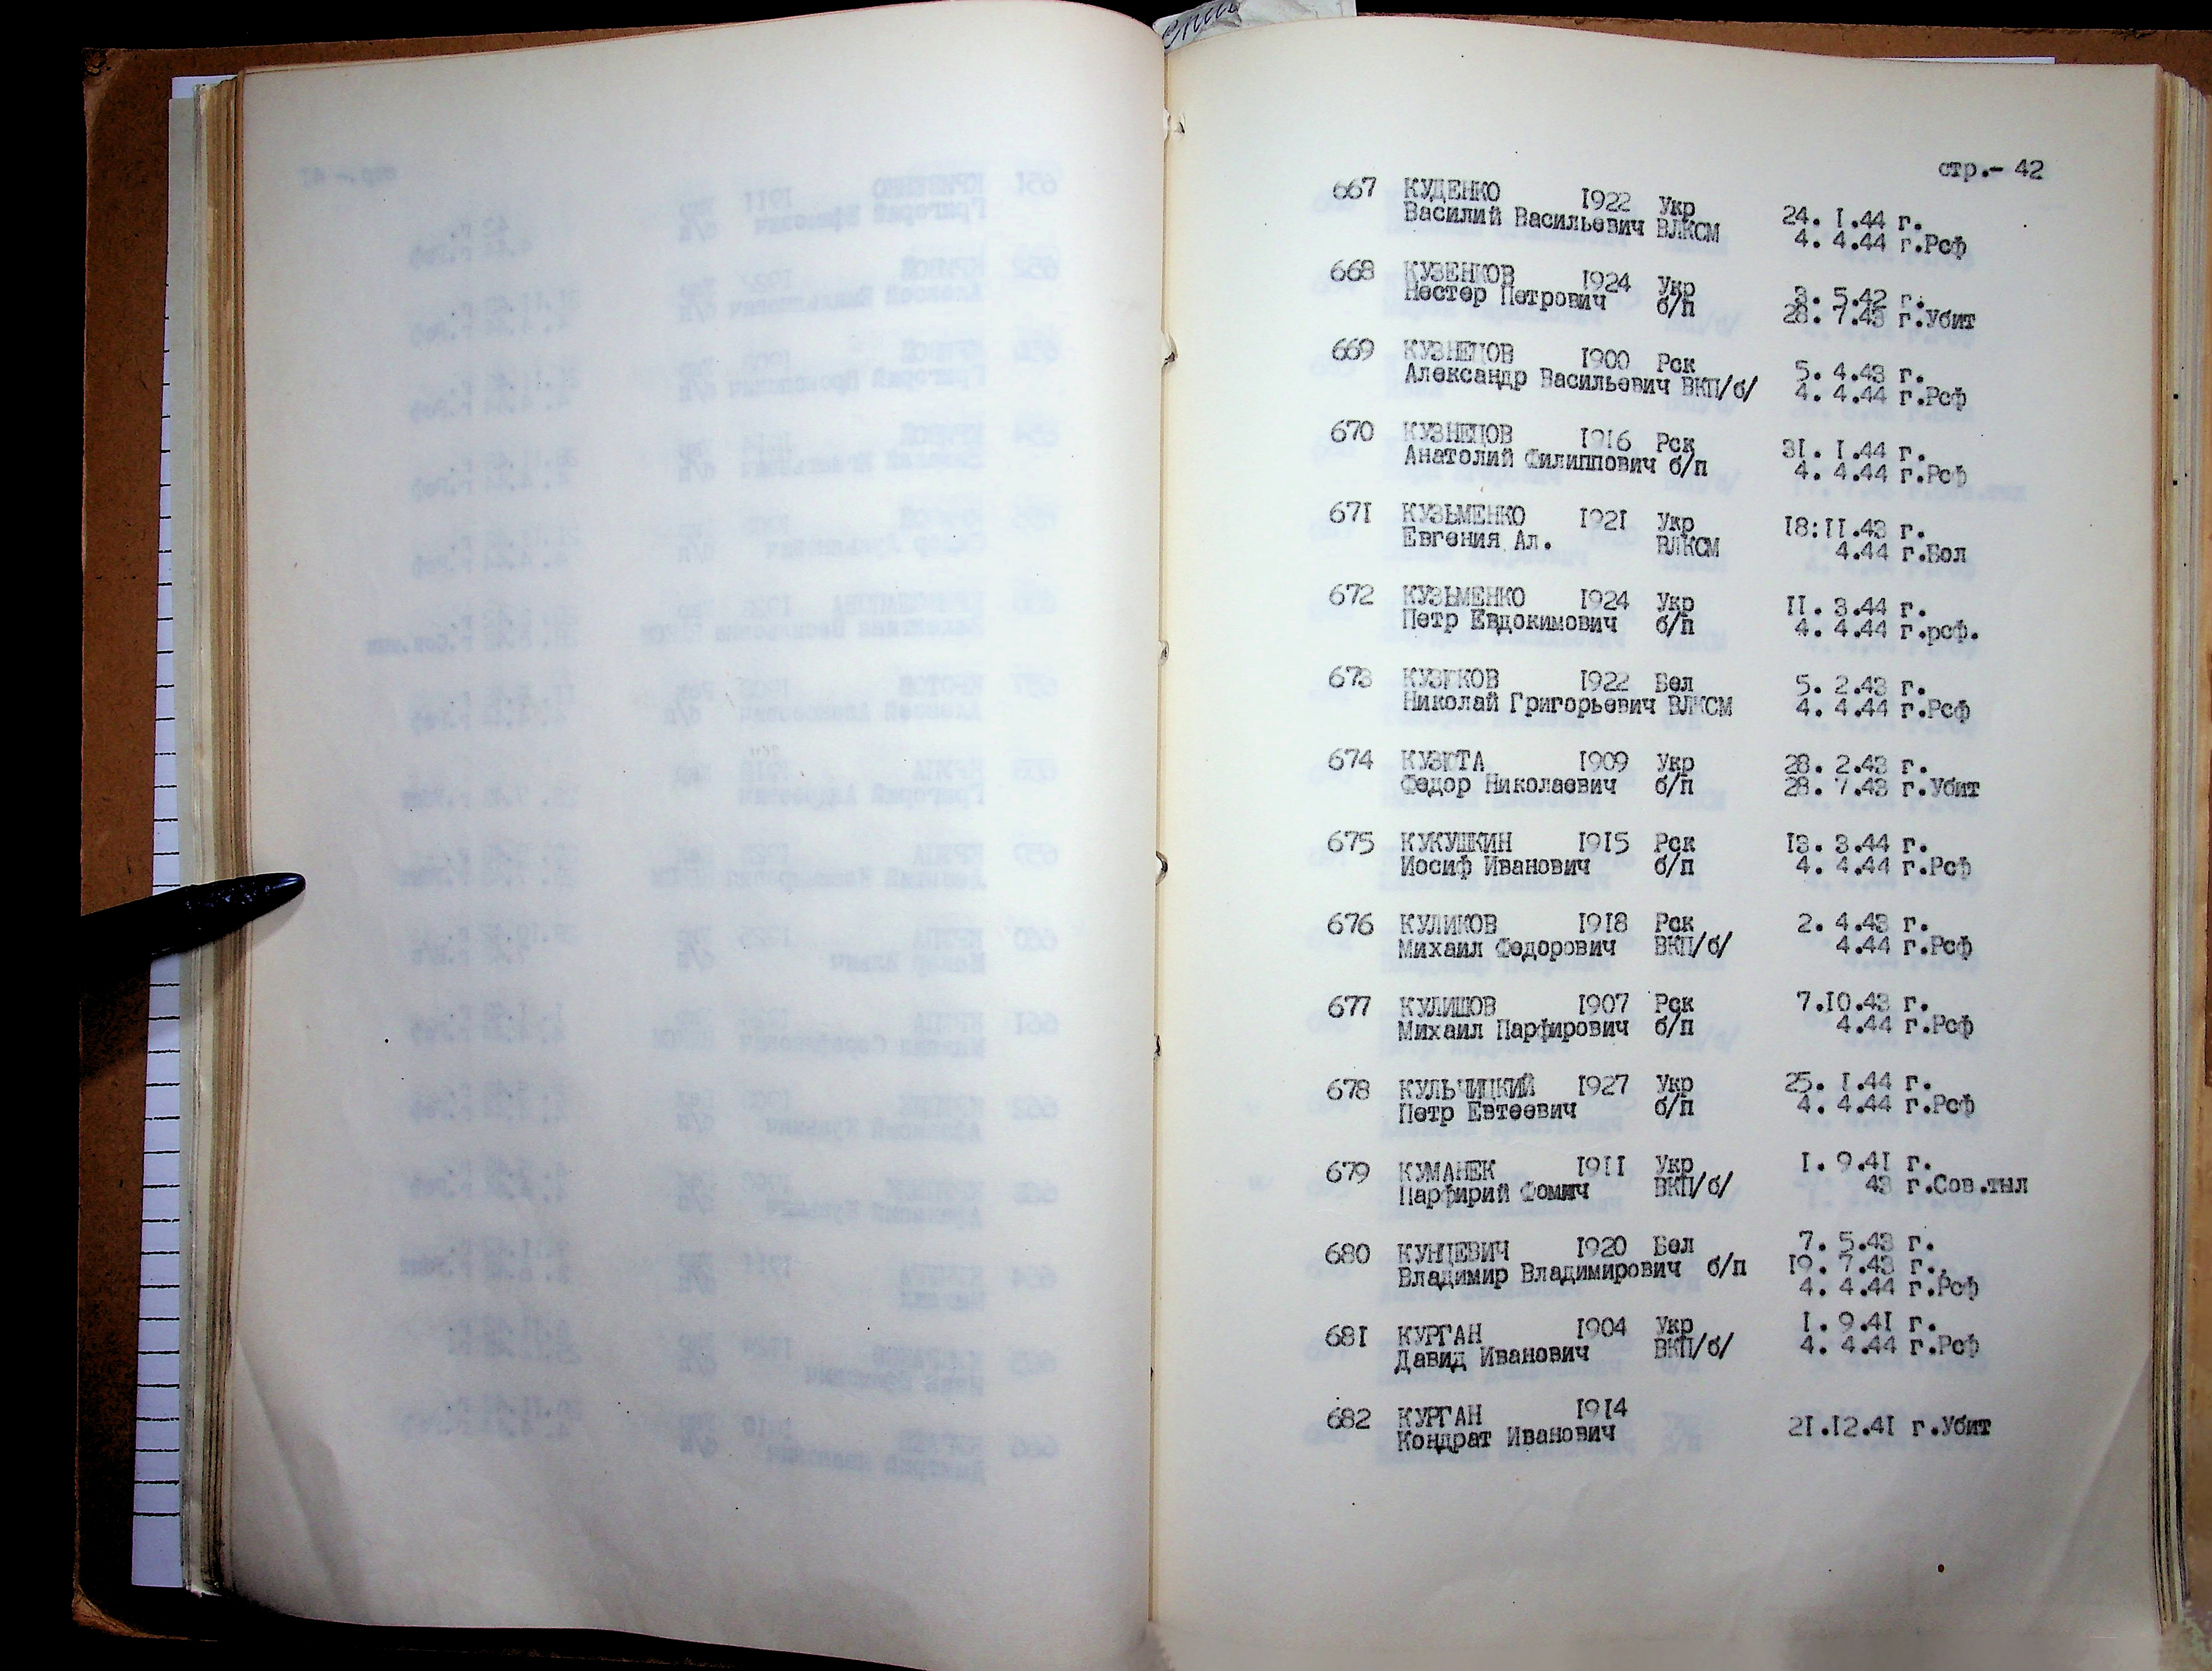 стр.- 42
667 КУДЕНКО 1922 Укр 24. 1.44 г.
Василий Васильевич ВЛКСМ 4. 4.44 г.Рсф
668 КУЗЕНКОВ 1924 Укр 3. 5.42 г.
Нестер Петрович б/п 28. 7.43 г.Убит
669 КУЗНЕЦОВ 1900 Рск 5. 4.43 г.
Александр Васильевич ВКП/б/ 4. 4.44 г.Рсф
670 КУЗНЕЦОВ 1916 Рск 31. 1.44 г.
Анатолий Филиппович б/п 4. 4.44 г.Рсф
671 КУЗЬМЕНКО 1921 Укр 18:11.43 г.
Евгения Ал. ВЛКСМ 4.44 г.Бол
672 КУЗЬМЕНКО 1924 Укр 11. 3.44 г.
Петр Евдокимович б/п 4. 4.44 г.рсф.
673 1922 Бел 5. 2.43 г.
Николай Григорьевич ВЛКСМ 4. 4.44 г.Рсф
674 1909 Укр 28. 2.43 г.
Федор Николаевич б/п 28. 7.43 г.Убит
675 КУКУШКИН 1915 Рск 13. 3.44 г.
Иосиф Иванович б/п 4. 4.44 г.Рсф
676 КУЛИКОВ 1918 Рск 2. 4.43 г.
Михаил Федорович ВКП/б/ 4.44 г.Рсф
677 КУЛИШОВ 1907 Рск 7.10.43 г.
Михаил Парфирович б/п 4.44 г.Рсф
678 КУЛЬЧИЦКИЙ 1927 Укр 25. 1.44 г.
Петр Евтеевич б/п 4. 4.44 г.Рсф
679 КУМАНЕК 1911 Укр 1. 9.41 г.
Парфирий Фомич ВКП/б/ 43 г.Сов.тыл
680 КУНЦЕВИЧ 1920 Бел 7. 5.43 г.
Владимир Владимирович б/п 19. 7.43 г.
4. 4.44 г.Рсф
681 КУРГАН 1904 Укр 1. 9.41 г.
Давид Иванович ВКП/б/ 4. 4.44 г.Рсф
682 КУРГАН 1914
Кондрат Иванович 21.12.41 г.Убит